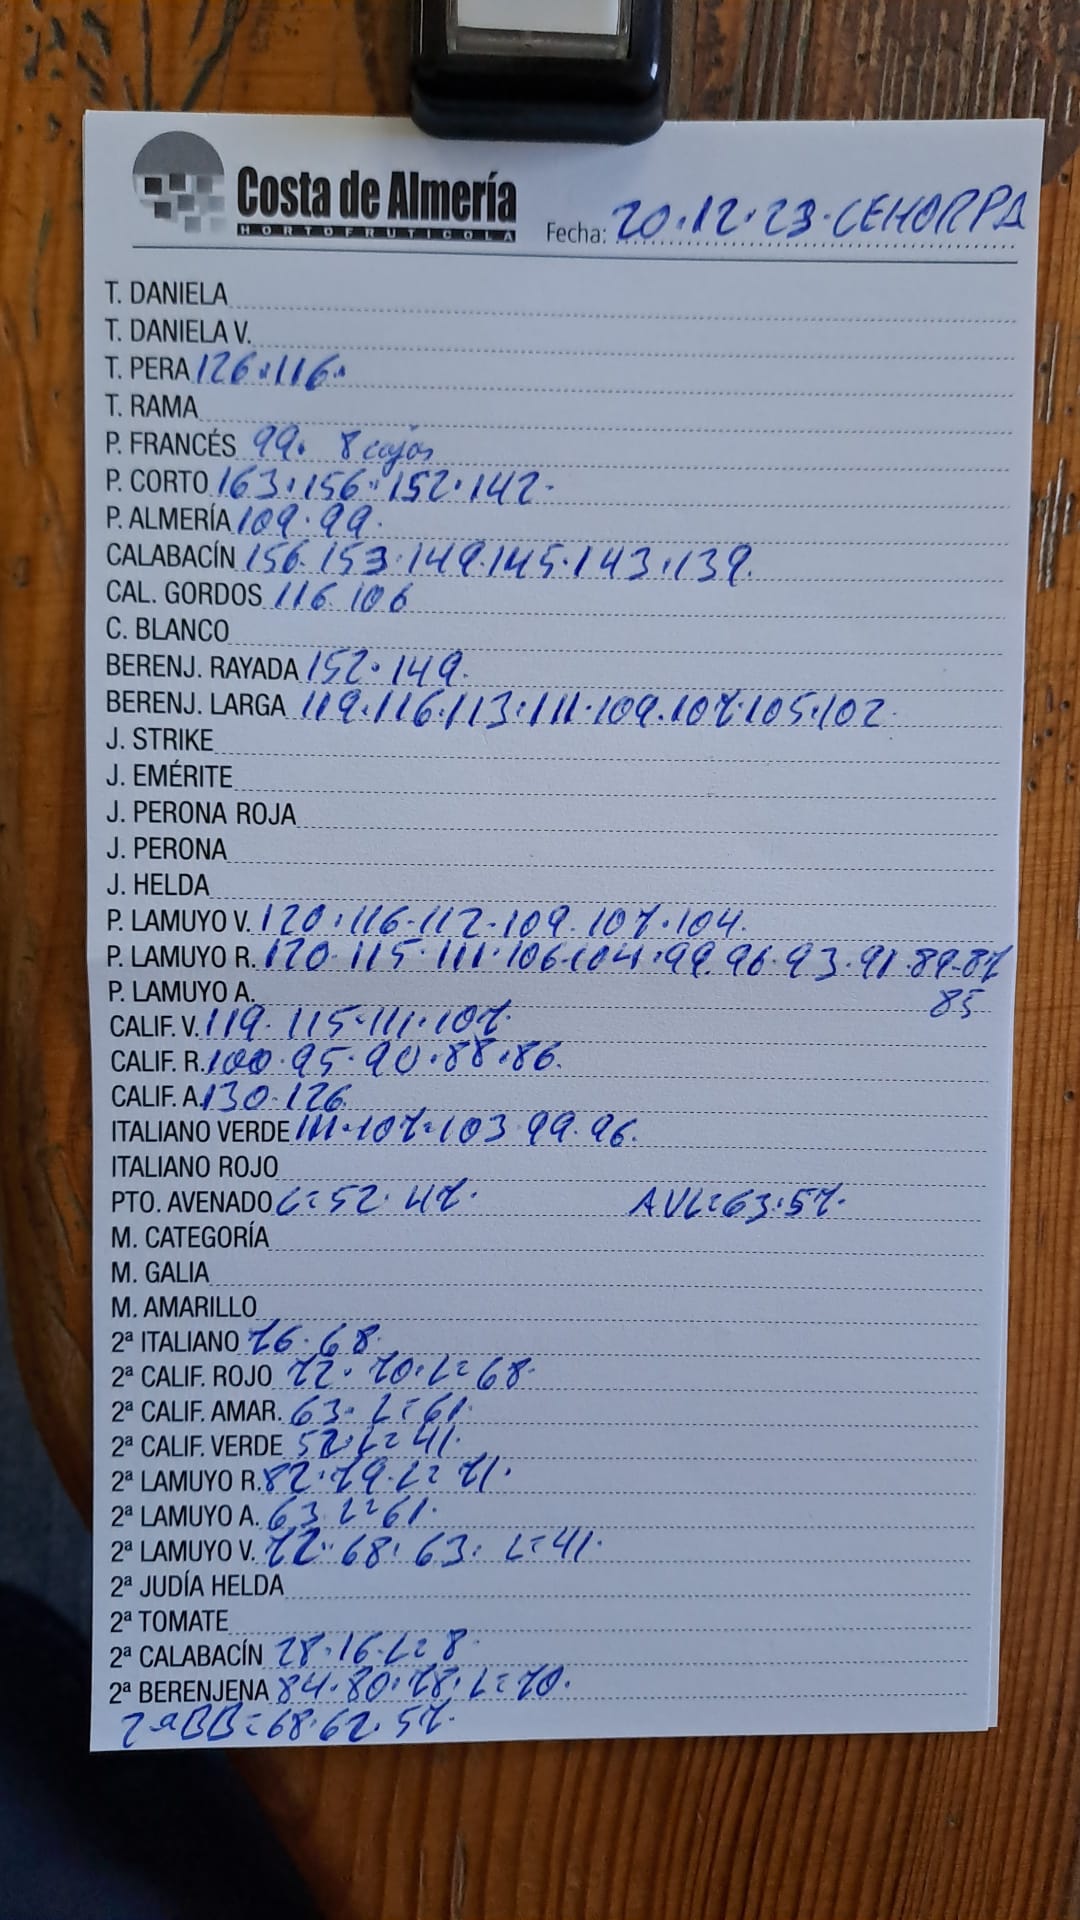 Costa de Almería
HORTOFRUTICOLA
Fecha: 20.12.23.CEHORPA
T. DANIELA
T. DANIELA V.
T. PERA 126.116.
T. RAMA
P. FRANCÉS 99. 8 cajas
P. CORTO 163.156.152.142.
P. ALMERÍA 109.99.
CALABACÍN 156.153.149.145.143.139.
CAL. GORDOS 116.106
C. BLANCO
BERENJ. RAYADA 152.149.
BERENJ. LARGA 119.116.113.111.109.107.105.102.
J. STRIKE
J. EMÉRITE
J. PERONA ROJA
J. PERONA
J. HELDA
P. LAMUYO V. 120.116.112.109.107.104.
P. LAMUYO R. 120.115.111.106.104.99.96.93.91.89.87
P. LAMUYO A. 85
CALIF. V. 119.115.111.107.
CALIF. R. 100.95.90.88.86.
CALIF. A. 130.126
ITALIANO VERDE 111.107.103.99.96.
ITALIANO ROJO
PTO. AVENADO L=52.47. AVL=63.57.
M. CATEGORÍA
M. GALIA
M. AMARILLO
2ª ITALIANO 76.68.
2ª CALIF. ROJO 72.70.L=68.
2ª CALIF. AMAR. 63.L=61.
2ª CALIF. VERDE 52.L=41.
2ª LAMUYO R. 82.79.L=71.
2ª LAMUYO A. 63.L=61.
2ª LAMUYO V. 72.68.63.L=41.
2ª JUDÍA HELDA
2ª TOMATE
2ª CALABACÍN 28.16.L=8.
2ª BERENJENA 84.80.78.L=70.
2ªBB=68.62.57.